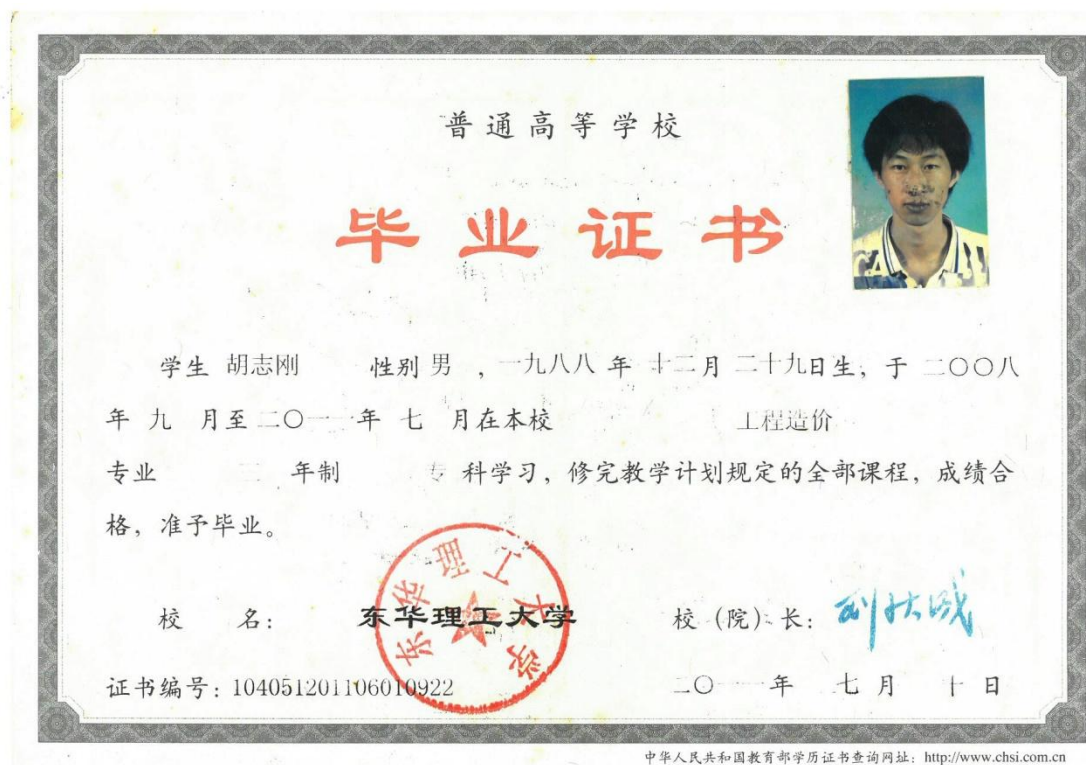 普通高等学校
毕业证书
学生 胡志刚 性别 男 ，一九八八 年 十二月 二十九日生，于 二〇〇八
年 九 月至 二〇一一年 七 月在本校 工程造价
专业 三 年制 专 科学习，修完教学计划规定的全部课程，成绩合
格，准予毕业。
东华理工大学
校 名： 东华理工大学 校（院）长：
证书编号：104051201106010922 二〇一一年 七 月 十 日
中华人民共和国教育部学历证书查询网址：http://www.chsi.com.cn